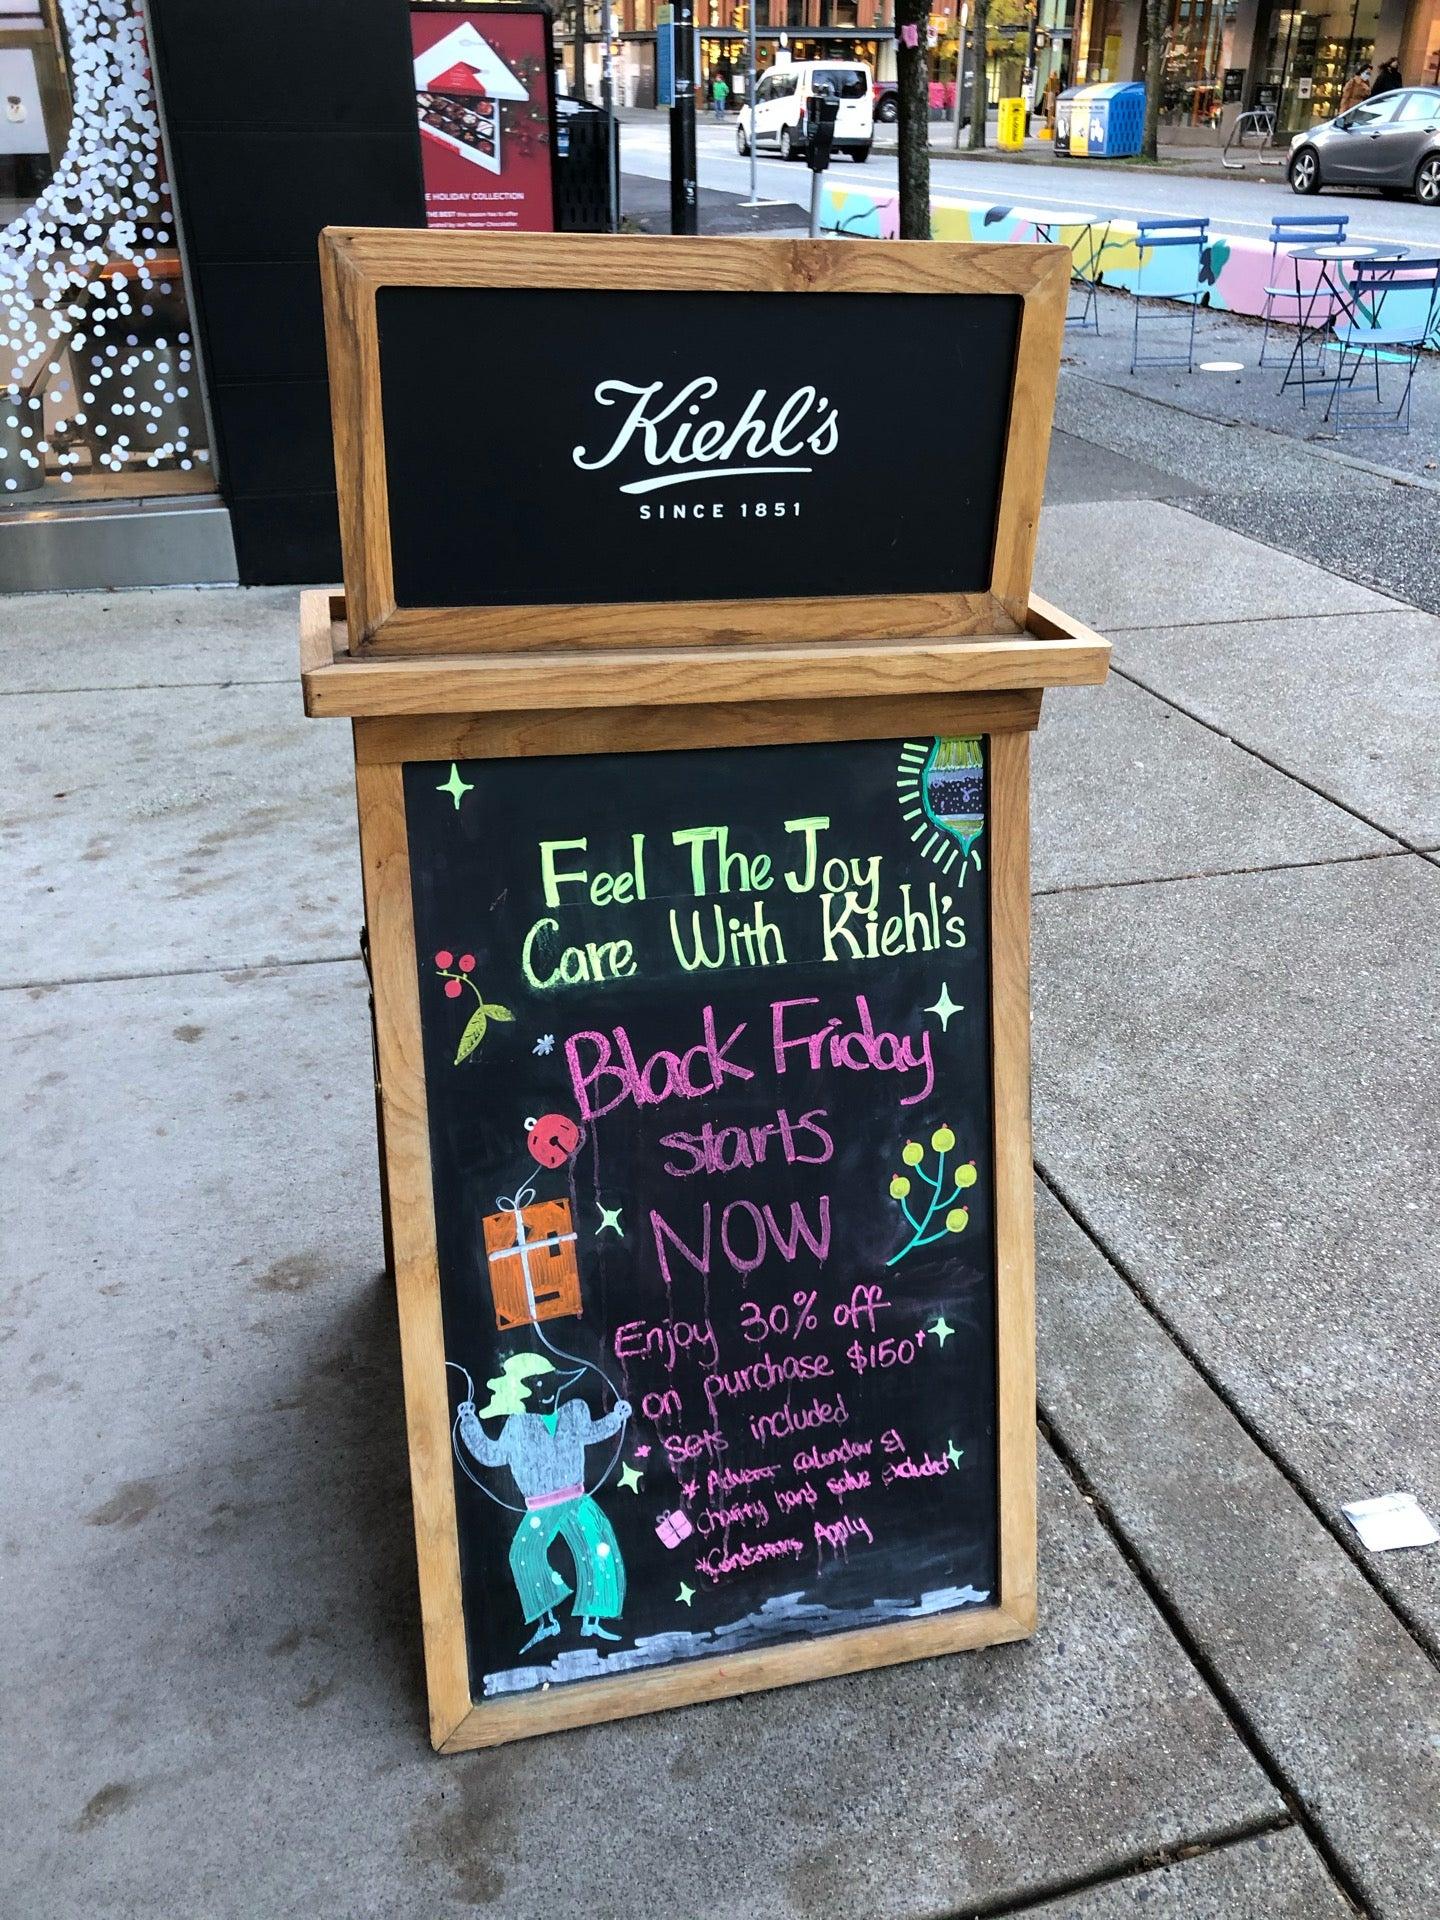 E HOLIDAY COLLECTION
THE BEST this season has to offer
Kiehl's
SINCE 1851
Feel The Joy
Care With Kiehl's
Black Friday
starts
NOW
Enjoy 30% off
on purchase $150+
* sets included
* Advent calendar &
Charity hand salve excluded
*Conditions Apply